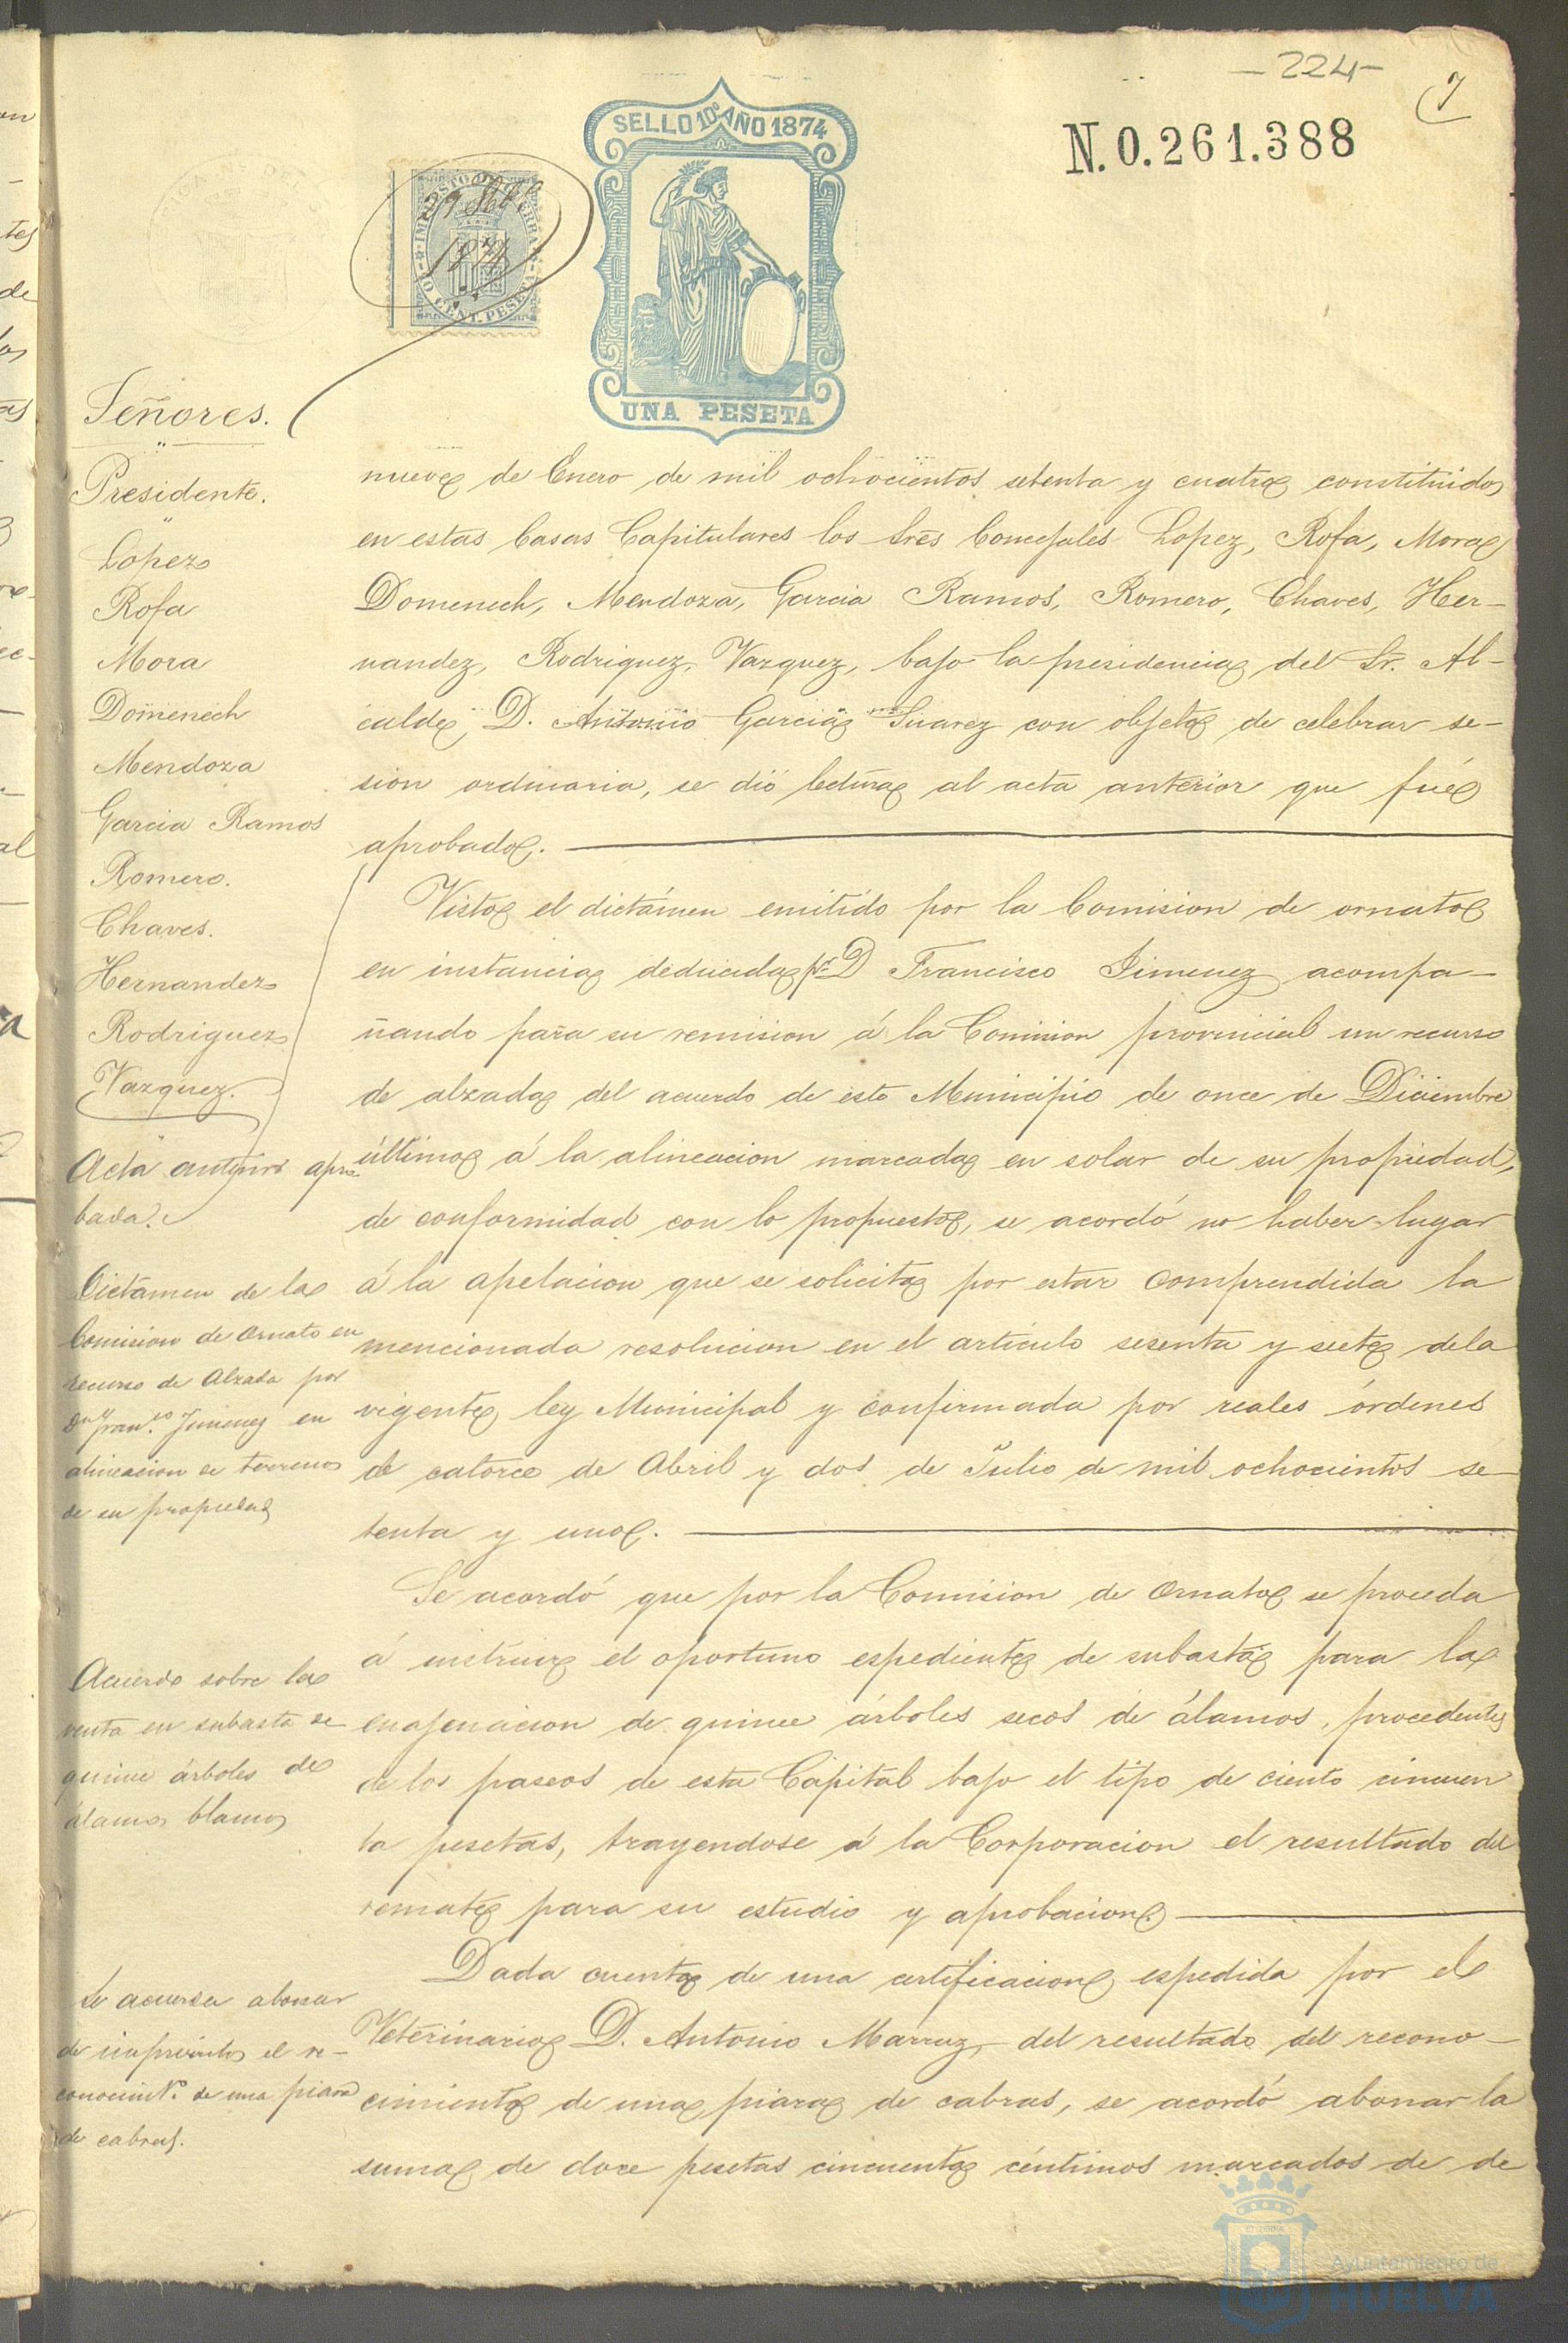 -224-
7
N.0.261.388
SELLO 10º AÑO 1874
UNA PESETA
IMPUESTO DE GUERRA
10 CENT. PESETA
1874
Señores.
Presidente.
Lopez
Rofa
Mora
Domenech
Mendoza
Garcia Ramos
Romero.
Chaves.
Hernandez
Rodriguez
Vazquez.
Acta anterior apro-
bada.
Dictamen de la
Comision de Ornato en
recurso de Alzada por
Dn Franco. Jimenez en
alineacion de terrenos
de su propiedad
Acuerdo sobre la
venta en subasta de
quince árboles de
álamos blancos
Se acuerda abonar
de imprevistos el re-
conocimto. de una piara
de cabras.
nueve de Enero de mil ochocientos setenta y cuatro constituidos
en estas Casas Capitulares los Sres Concejales Lopez, Rofa, Mora
Domenech, Mendoza, Garcia Ramos, Romero, Chaves, Her-
nandez, Rodriguez, Vazquez, bajo la presidencia del Sr. Al-
calde, D. Antonio Garcia Suarez con objeto de celebrar se-
sion ordinaria, se dió lectura al acta anterior que fué
aprobada.
Visto el dictámen emitido por la Comision de ornato
en instancia deducida pr. D Francisco Jimenez acompa-
ñando para su remision á la Comision provincial un recurso
de alzada del acuerdo de este Municipio de once de Diciembre
último á la alineacion marcada en solar de su propiedad,
de conformidad con lo propuesto, se acordó no haber lugar
á la apelacion que se solicita por estar comprendida la
mencionada resolucion en el artículo sesenta y siete de la
vigente ley Municipal y confirmada por reales órdenes
de catorce de Abril y dos de Julio de mil ochocientos se-
tenta y uno.
Se acordó que por la Comision de Ornato se proceda
á instruir el oportuno espediente de subasta para la
enajenacion de quince árboles secos de álamos, procedentes
de los paseos de esta Capital bajo el tipo de ciento cincuen
ta pesetas, trayendose á la Corporacion el resultado del
remate para su estudio y aprobacion.
Dada cuenta de una certificacion espedida por el
Veterinario D. Antonio Marruz, del resultado del recono-
cimiento de una piara de cabras, se acordó abonar la
suma de doce pesetas cincuenta céntimos marcados de de
Ayuntamiento de
HUELVA